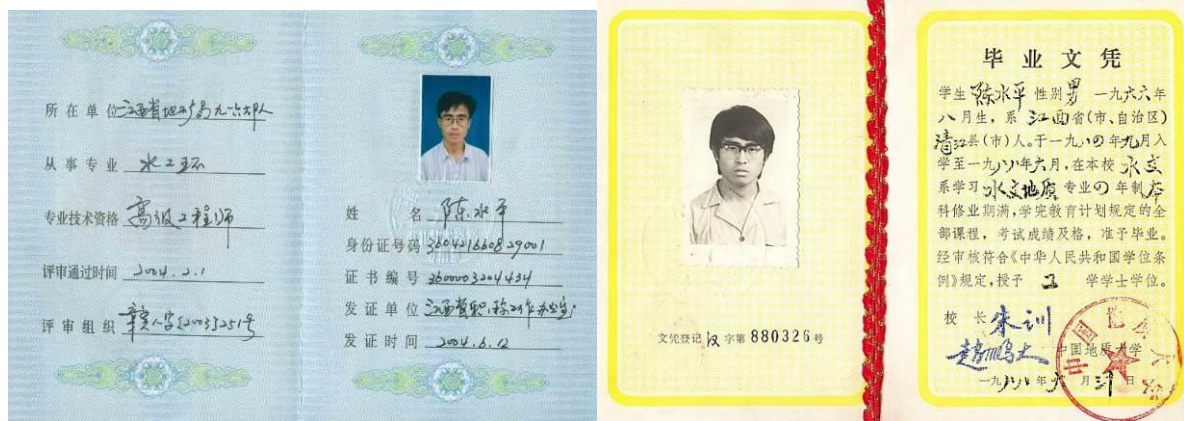 所在单位 江西省地矿局九一六大队
从事专业 水工环
专业技术资格 高级工程师
评审通过时间 2004.2.1
评审组织 赣人字[2003]251号
姓名 陈水平
身份证号码 360421660829001
证书编号 3600003204434
发证单位 江西省职称工作办公室
发证时间 2004.6.12
文凭登记汉字第880326号
毕业文凭
学生 陈水平 性别 男 一九六六年
八月生，系 江西省(市、自治区)
清江县(市)人。于一九八四年九月入
学至一九八八年六月，在本校 水文
系学习 水文地质 专业四年制本
科修业期满，学完教育计划规定的全
部课程，考试成绩及格，准予毕业。
经审核符合《中华人民共和国学位条
例》规定，授予 工 学学士学位。
校长 朱训
赵鹏大
中国地质大学
一九八八年六月 日